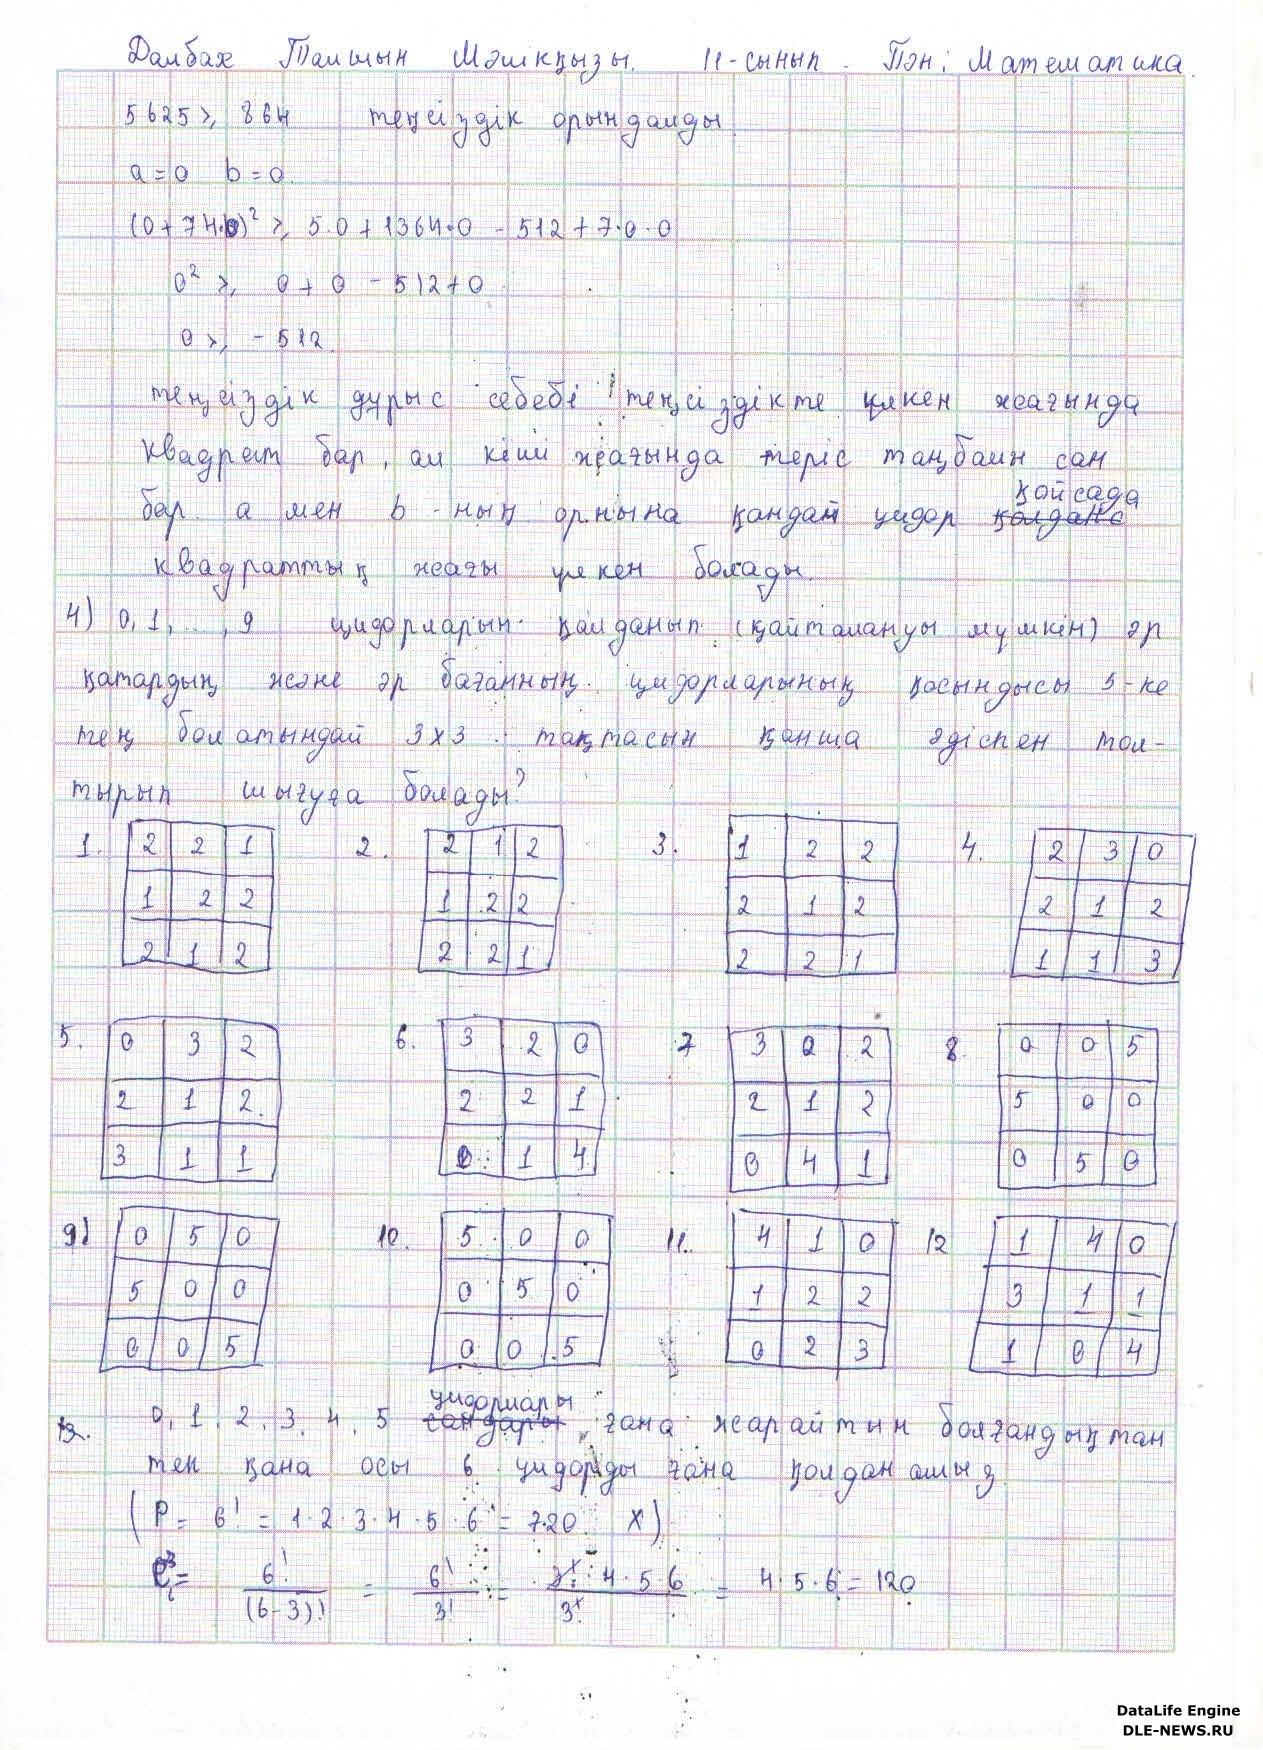 Далбах Талшын Мәлікқызы. 11-сынып. Пән: Математика.
5625 ≥ 864 теңсіздік орындалды
a = 0 b = 0.
(0 + 74·0)² ≥ 5·0 + 1364·0 - 512 + 7·0·0
0² ≥ 0 + 0 - 512 + 0
0 ≥ - 512
теңсіздік дұрыс себебі теңсіздікте үлкен жағында
квадрат бар, ал кіші жағында теріс таңбалы сан
бар. a мен b - ның орнына қандай цифр қойсада
квадраттың жағы үлкен болады.
4) 0, 1, ..., 9 цифрларын қолданып (қайталануы мүмкін) әр
қатардың және әр бағанның цифрларының қосындысы 5-ке
тең болатындай 3х3 тақтасын қанша әдіспен тол-
тырып шығуға болады?
1. 2. 3. 4.
2 2 1 2 1 2 1 2 2 2 3 0
1 2 2 1 2 2 2 1 2 2 1 2
2 1 2 2 2 1 2 2 1 1 1 3
5. 6. 7 8.
0 3 2 3 2 0 3 0 2 0 0 5
2 1 2 2 2 1 2 1 2 5 0 0
3 1 1 0 1 4 0 4 1 0 5 0
9) 10. 11. 12
0 5 0 5 0 0 4 1 0 1 4 0
5 0 0 0 5 0 1 2 2 3 1 1
0 0 5 0 0 5 0 2 3 1 0 4
13. 0, 1, 2, 3, 4, 5 цифрлары ғана жарайтын болғандықтан
тек қана осы 6 цифрды ғана қолданамыз
(P = 6! = 1·2·3·4·5·6 = 720 X)
= 6!/(6-3)! = 6!/3! = 3!·4·5·6/3! = 4·5·6 = 120
DataLife Engine
DLE-NEWS.RU